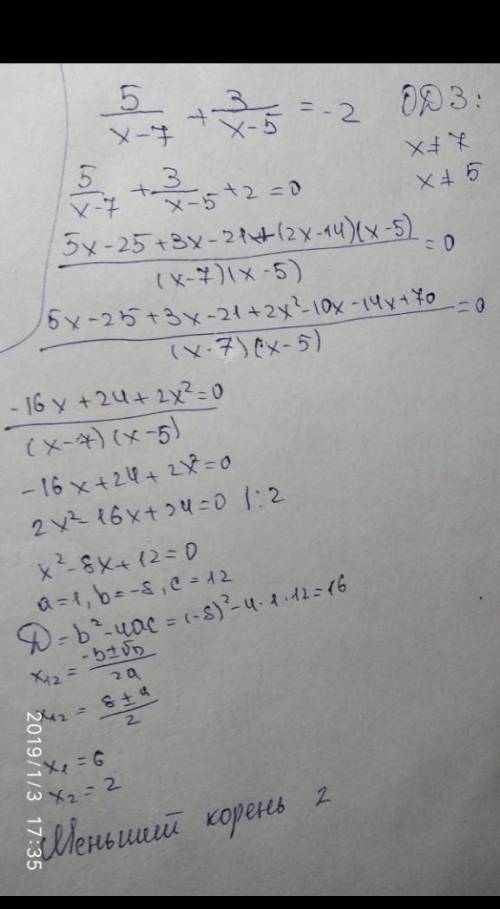 5/(x-7) + 3/(x-5) = -2 ОДЗ:
x≠7
x≠5
5/(x-7) + 3/(x-5) + 2 = 0
(5x-25+3x-21+(2x-14)(x-5))/((x-7)(x-5)) = 0
(5x-25+3x-21+2x²-10x-14x+70)/((x-7)(x-5)) = 0
(-16x+24+2x²=0)/((x-7)(x-5))
-16x+24+2x²=0
2x²-16x+24=0 |:2
x²-8x+12=0
a=1, b=-8, c=12
D=b²-4ac=(-8)²-4·1·12=16
x₁₂=(-b±√D)/2a
x₁₂=(8±4)/2
x₁=6
x₂=2
Меньший корень 2
2019/1/3 17:35